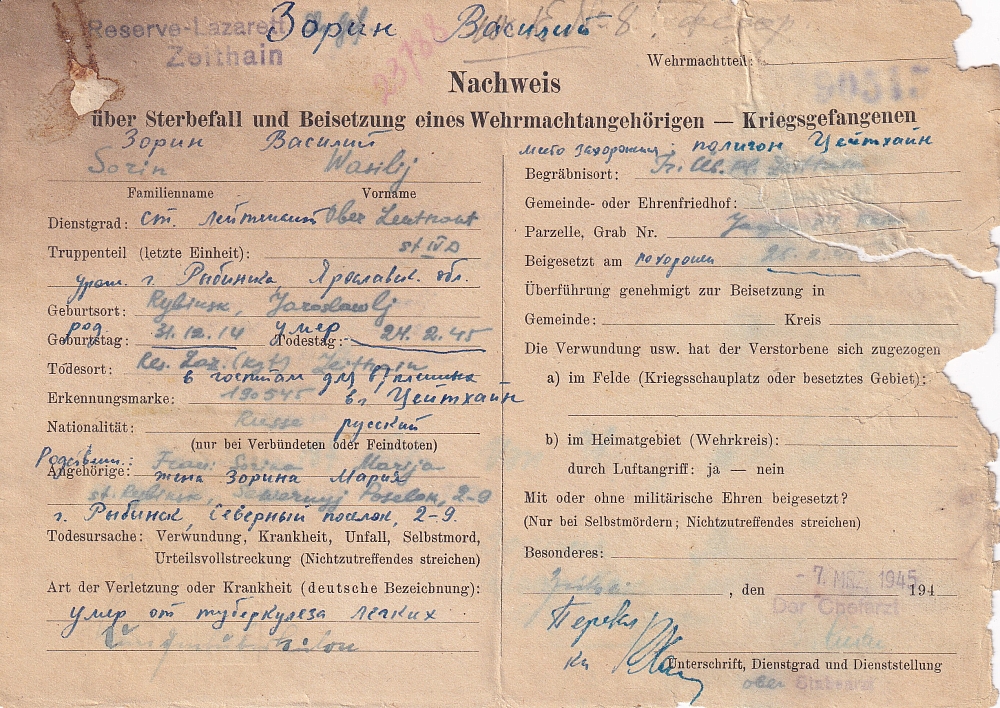 Зорин Василий № 8.
Reserve-Lazarett
Zeithain
Wehrmachtteil:
Nachweis
über Sterbefall und Beisetzung eines Wehrmachtangehörigen — Kriegsgefangenen
Зорин Василий
Sorin Wasilij
Familienname Vorname
Dienstgrad: ст. лейтенант Ober Leutnant
Truppenteil (letzte Einheit): st IV D
урож. г. Рыбинска, Ярославск. обл.
Geburtsort: Rybinsk, Jaroslawlj
род. умер
Geburtstag: 31.12.14 Todestag: 24.2.45
Todesort: Res. Laz. (Kgf.) Zeithain
в госпитал для в/пленных
Erkennungsmarke: 190545 в л Цейтхайн
Nationalität: Russe русский
(nur bei Verbündeten oder Feindtoten)
Родствен.: Frau: Sorina Marija
Angehörige: жена Зорина Мария
st. Rybinsk, Sewernyj Poselok, 2-9
г. Рыбинск, Северный поселок, 2-9.
Todesursache: Verwundung, Krankheit, Unfall, Selbstmord,
Urteilsvollstreckung (Nichtzutreffendes streichen)
Art der Verletzung oder Krankheit (deutsche Bezeichnung):
умер от туберкулеза легких
место захоронения: полигон Цейтхайн
Begräbnisort: Tr. Üb. Pl. Zeithain
Gemeinde- oder Ehrenfriedhof:
Parzelle, Grab Nr.
Beigesetzt am похоронен
Überführung genehmigt zur Beisetzung in
Gemeinde: Kreis
Die Verwundung usw. hat der Verstorbene sich zugezogen
a) im Felde (Kriegsschauplatz oder besetztes Gebiet):
b) im Heimatgebiet (Wehrkreis):
durch Luftangriff: ja — nein
Mit oder ohne militärische Ehren beigesetzt?
(Nur bei Selbstmördern; Nichtzutreffendes streichen)
Besonderes:
Zeithain, den - 7. MRZ. 1945 194
Der Chefarzt
Перевел
Unterschrift, Dienstgrad und Dienststellung
ober Stabsarzt